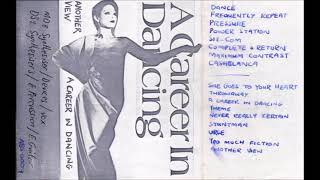 NO2 Synthesizer / Devices / Vox
DS2 Synthesizers / E Percussion / E Guitar
ANOTHER VIEW
A CAREER IN DANCING
A Career In
Dancing
DANCE
FREQUENTLY REPEAT
PRESSURE
POWER STATION
SIE-COM
COMPLETE & RETURN
MAXIMUM CONTRAST
CASABLANCA
SHE GOES TO YOUR HEART
THROWAWAY
A CAREER IN DANCING
THEME
NEVER REALLY CERTAIN
STUNTMAN
URGE
TOO MUCH FICTION
ANOTHER VIEW